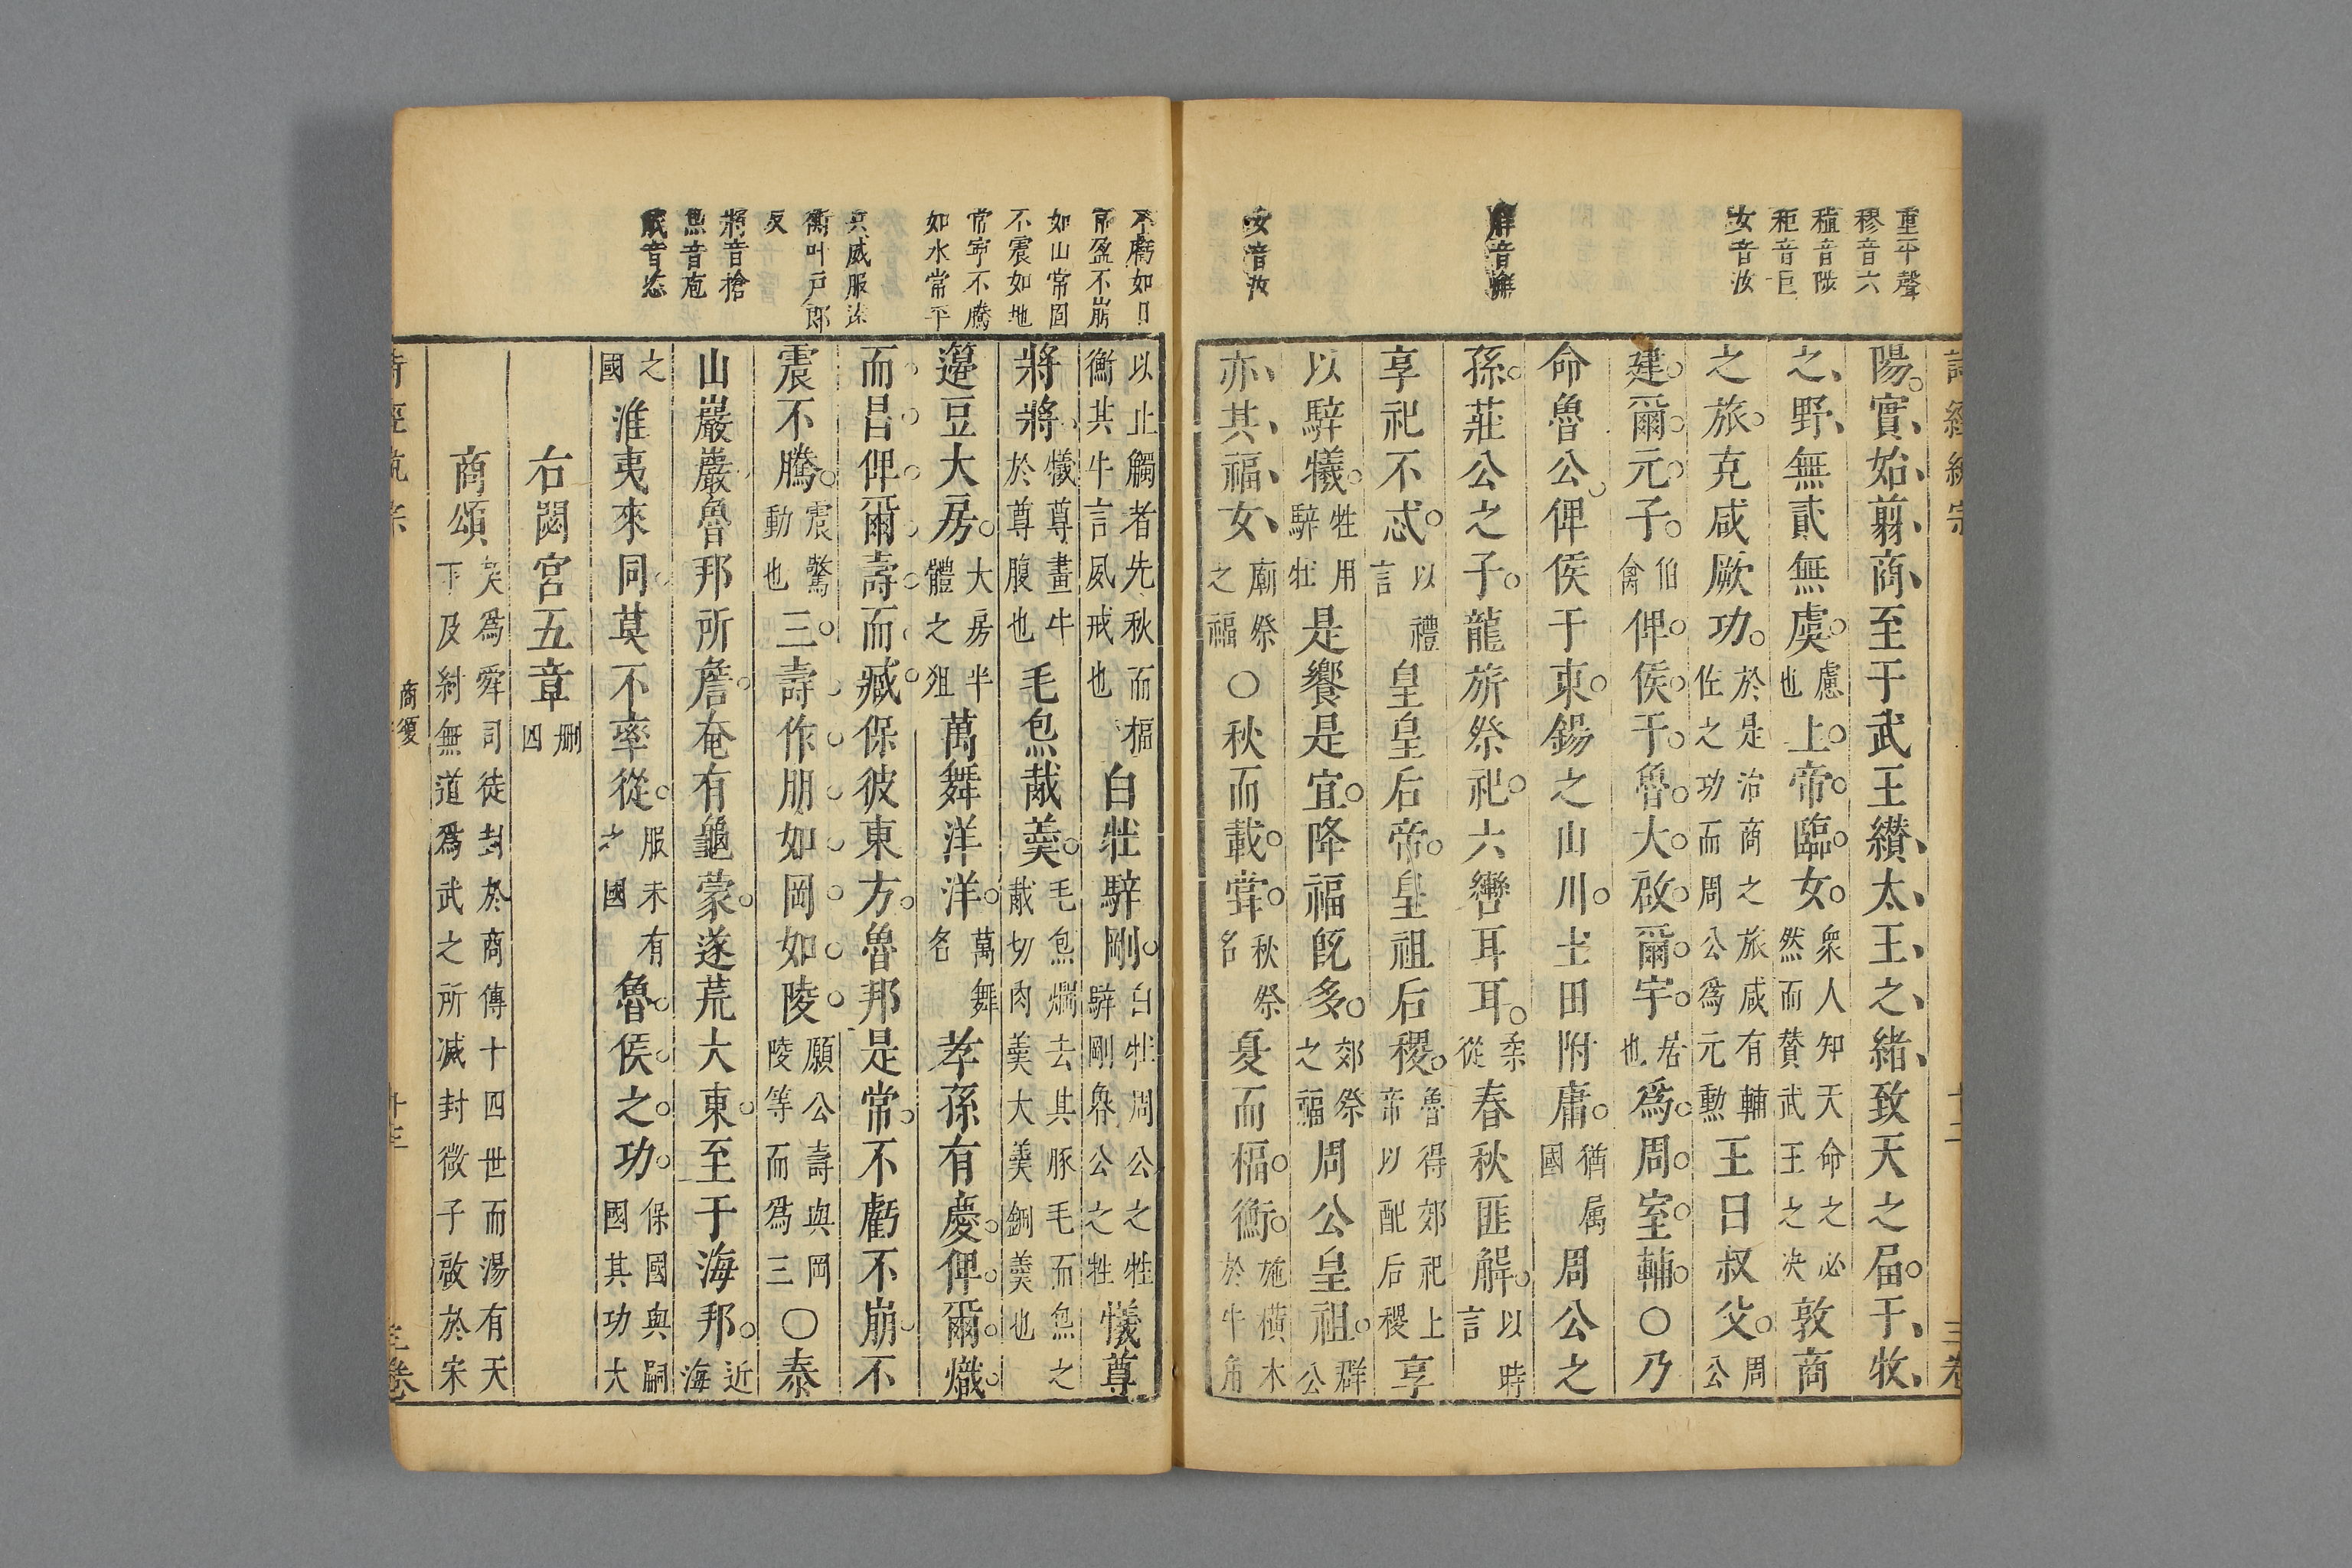 重平聲
穋音六
稙音陟
秬音巨
女音汝
解音懈
女音汝
陽實始翦商至于武王纘太王之緒致天之屆于牧
之野無貳無虞慮也上帝臨女衆人知天命之必然而贊武王之决敦商
之旅克咸厥功於是治商之旅咸有輔佐之功而周公爲元勳王曰叔父周公
建爾元子伯禽俾侯于魯大啟爾宇居也爲周室輔○乃
命魯公俾侯于東錫之山川土田附庸猶屬國周公之
孫莊公之子龍旂祭祀六轡耳耳柔從春秋匪解以時言
享祀不忒以禮言皇皇后帝皇祖后稷魯得郊祀上帝以配后稷享
以騂犧牲用騂牡是饗是宜降福旣多郊祭之福周公皇祖群公
亦其福女廟祭之福○秋而載嘗秋祭名夏而楅衡施橫木於牛角
不虧如日
常盈不崩
如山常固
不震如地
常寧不騰
如水常平
衡叶戸郎
反
將音搶
炰音庖
以止觸者先秋而楅衡其牛言夙戒也白牡騂剛白牡周公之牲騂剛魯公之牲犧尊
將將犧尊畫牛於尊腹也毛炰胾羹毛炰爓去其豚毛而炰之胾切肉羹大羹鉶羹也
籩豆大房大房半體之俎萬舞洋洋萬舞名孝孫有慶俾爾熾
而昌俾爾壽而臧保彼東方魯邦是常不虧不崩不
震不騰震驚動也三壽作朋如岡如陵願公壽與岡陵等而爲三○泰
山巖巖魯邦所詹奄有龜蒙遂荒大東至于海邦近海
之國淮夷來同莫不率從服未有之國魯侯之功保國與嗣國其功大
右閟宮五章刪四
商頌契爲舜司徒封於商傳十四世而湯有天下及紂無道爲武之所滅封微子啟於宋
商頌